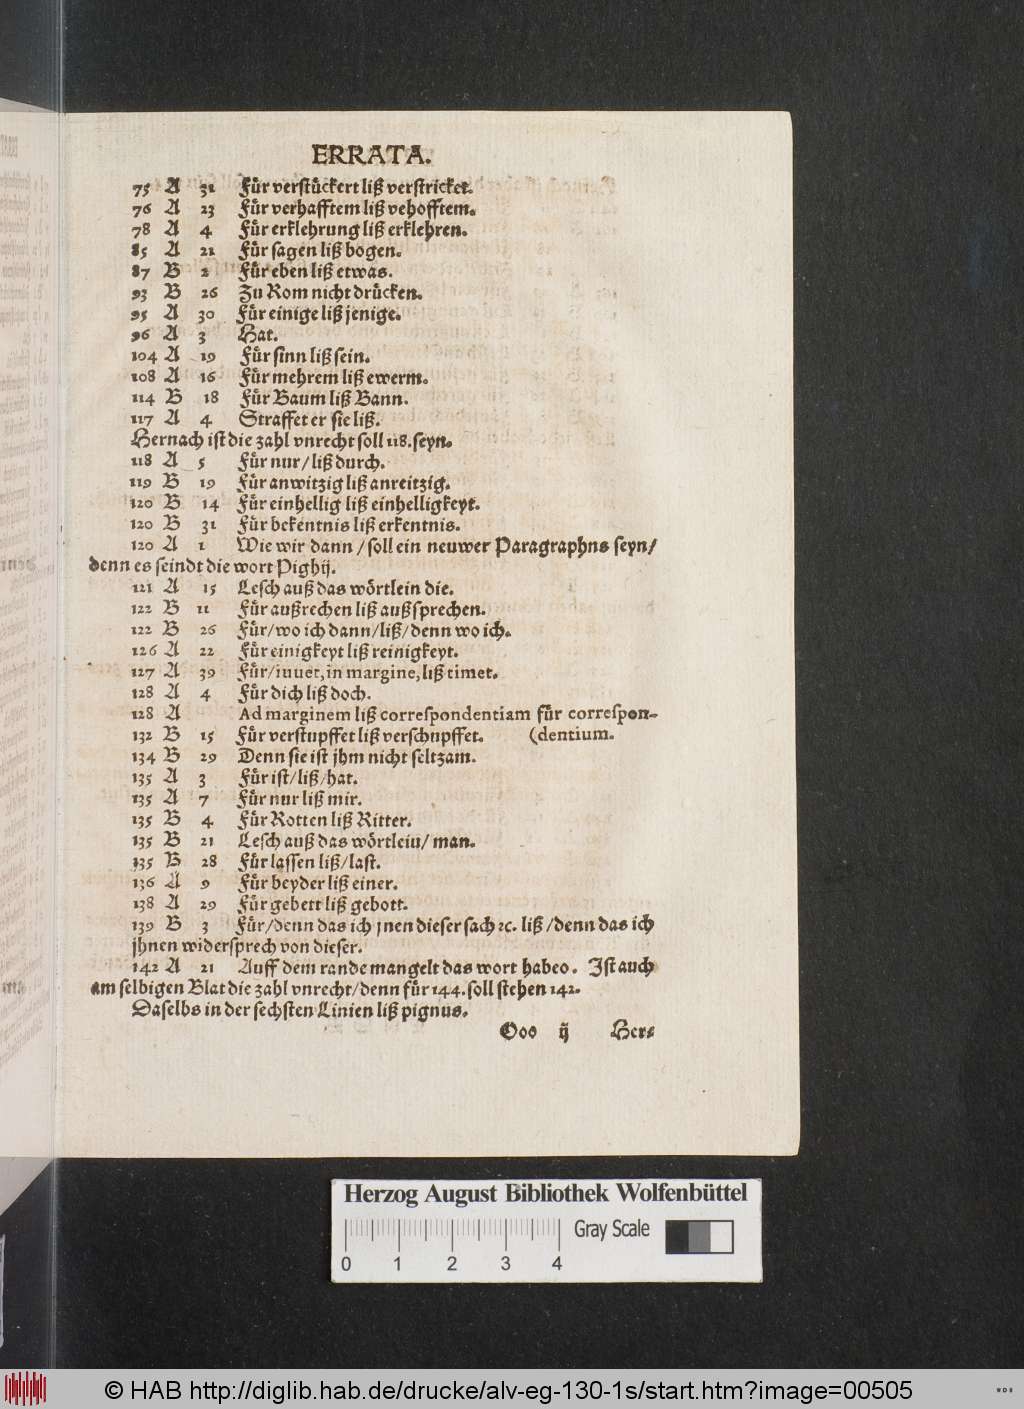 ERRATA.
75 A 31 Für verstückert liß verstricket.
76 A 23 Für verhafftem liß vehofftem.
78 A 4 Für erklehrung liß erklehren.
85 A 21 Für sagen liß bogen.
87 B 2 Für eben liß etwas.
93 B 26 Zu Rom nicht drücken.
95 A 30 Für einige liß jenige.
96 A 3 Hat.
104 A 19 Für sinn liß sein.
108 A 16 Für mehrem liß ewerm.
114 B 18 Für Baum liß Bann.
117 A 4 Straffet er sie liß.
Hernach ist die zahl vnrecht soll 118. seyn.
118 A 5 Für nur / liß durch.
119 B 19 Für anwitzig liß anreitzig.
120 B 14 Für einhellig liß einhelligkeyt.
120 B 31 Für bekentnis liß erkentnis.
120 A 1 Wie wir dann / soll ein neuwer Paragraphns seyn /
denn es seindt die wort Pighij.
121 A 15 Lesch auß das wörtlein die.
122 B 11 Für außrechen liß außsprechen.
122 B 26 Für / wo ich dann / liß / denn wo ich.
126 A 22 Für einigkeyt liß reinigkeyt.
127 A 39 Für / iuuet, in margine, liß timet.
128 A 4 Für dich liß doch.
128 A Ad marginem liß correspondentiam für correspon-
132 B 15 Für verstupffet liß verschupffet. (dentium.
134 B 29 Denn sie ist jhm nicht seltzam.
135 A 3 Für ist / liß / hat.
135 A 7 Für nur liß mir.
135 B 4 Für Rotten liß Ritter.
135 B 21 Lesch auß das wörtleiu / man.
135 B 28 Für lassen liß / last.
136 A 9 Für beyder liß einer.
138 A 29 Für gebett liß gebott.
139 B 3 Für / denn das ich jnen dieser sach ꝛc. liß / denn das ich
jhnen widersprech von dieser.
142 A 21 Auff dem rande mangelt das wort habeo. Ist auch
am selbigen Blat die zahl vnrecht / denn für 144. soll stehen 142.
Daselbs in der sechsten Linien liß pignus.
Ooo ij Her-
Herzog August Bibliothek Wolfenbüttel
Gray Scale
0 1 2 3 4
© HAB http://diglib.hab.de/drucke/alv-eg-130-1s/start.htm?image=00505